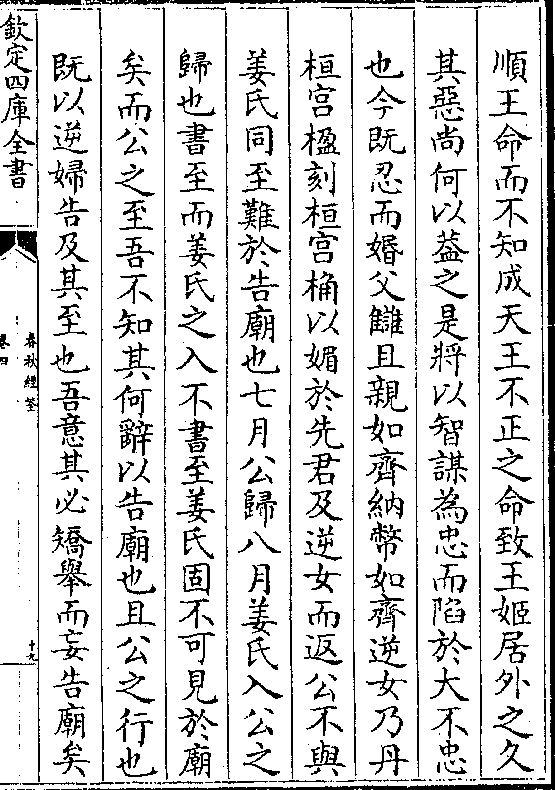 順王命而不知成天王不正之命致王姬居外之久
其惡尚何以葢之是將以智謀為忠而陷於大不忠
也今既忍而婚父讎且親如齊納幣如齊逆女乃丹
桓宫楹刻桓宫桷以媚於先君及逆女而返公不與
姜氏同至難於告廟也七月公歸八月姜氏入公之
歸也書至而姜氏之入不書至姜氏固不可見於廟
矣而公之至吾不知其何辭以告廟也且公之行也
既以逆婦告及其至也吾意其必矯舉而妄告廟矣
欽定四庫全書
春秋經筌
卷四
十九